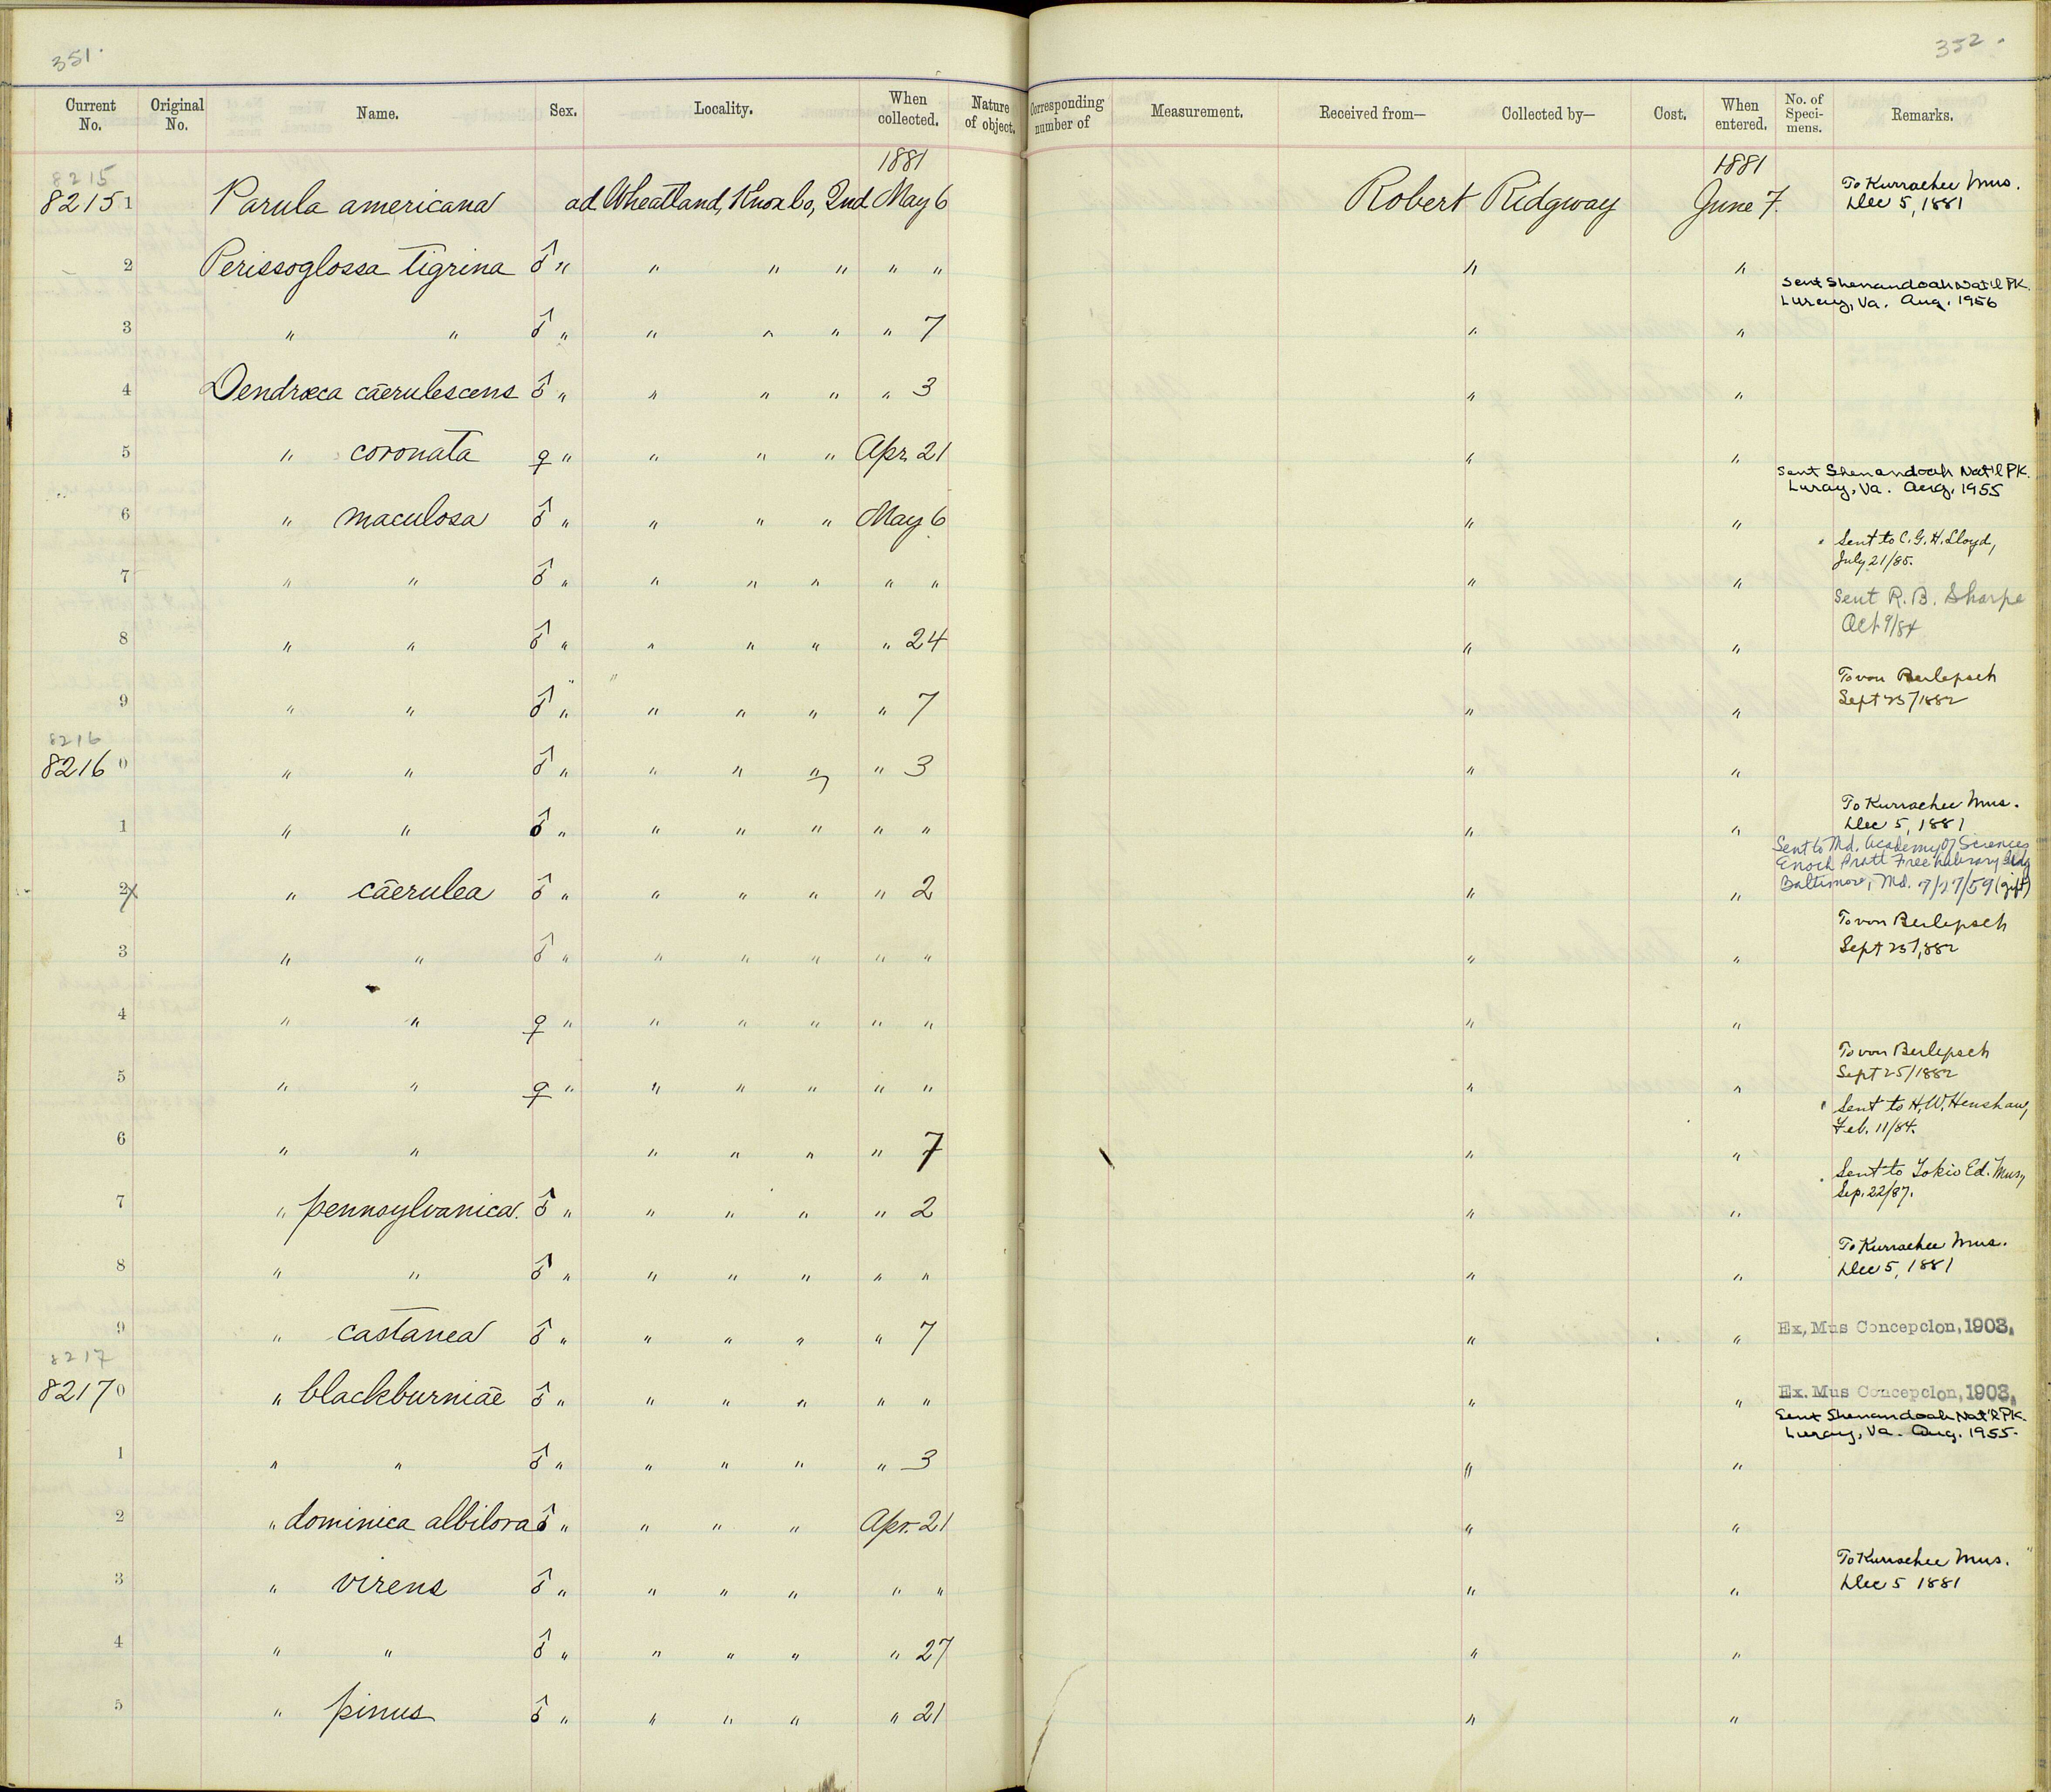 351.
352.
Current No. Original No. Name. Sex. Locality. When collected. Nature of object. Corresponding number of Measurement. Received from— Collected by— Cost. When entered. No. of Specimens. Remarks.
1881 1881
8215
82151 Parula americana ad. Wheatland, Knox Co, Ind May 6 Robert Ridgway June 7. To Kurrachee Mus. Dec 5, 1881
2 Perissoglossa tigrina ♂ " " " " " " " "
Sent Shenandoah Nat'l PK. Luray, Va. Aug. 1956
3 " " ♂ " " " " " 7 " "
4 Dendrœca cærulescens ♂ " " " " " 3 " "
5 " coronata ♀ " " " " Apr. 21 " "
Sent Shenandoah Nat'l PK. Luray, Va. Aug. 1955
6 " maculosa ♂ " " " " May 6 " "
Sent to C. G. H. Lloyd, July 21/85.
7 " " ♂ " " " " " " " "
Sent R. B. Sharpe Oct 9/84
8 " " ♂ " " " " " 24 " "
9 " " ♂ " " " " " 7 " " To von Berlepsch Sept 25/1882
8216
82160 " " ♂ " " " " " 3 " "
1 " " ♂ " " " " " " " " To Kurrachee Mus. Dec 5, 1881
Sent to Md. Academy of Sciences
Enoch Pratt Free Library Bldg
Baltimore, Md. 7/27/59 (gift)
2 " cærulea ♂ " " " " " 2 " "
3 " " ♂ " " " " " " " " To von Berlepsch Sept 25/1882
4 " " ♀ " " " " " " " "
5 " " ♀ " " " " " " " " To von Berlepsch Sept 25/1882
Sent to H. W. Henshaw, Feb. 11/84.
6 " " " " " " 7 " "
Sent to Tokio Ed. Mus, Sep. 22/87.
7 " pennsylvanica. ♂ " " " " " 2 " "
8 " " ♂ " " " " " " " " To Kurrachee Mus. Dec 5, 1881
9 " castanea ♂ " " " " " 7 " " Ex. Mus Concepcion, 1903.
8217
82170 " blackburniæ ♂ " " " " " " " " Ex. Mus Concepcion, 1903.
Sent Shenandoah Nat'l PK. Luray, Va. Aug. 1955.
1 " " ♂ " " " " " 3 " "
2 " dominica albilora ♂ " " " " Apr. 21 " "
3 " virens ♂ " " " " " " " " To Kurrachee Mus. Dec 5 1881
4 " " ♂ " " " " " 27 " "
5 " pinus ♂ " " " " " 21 " "